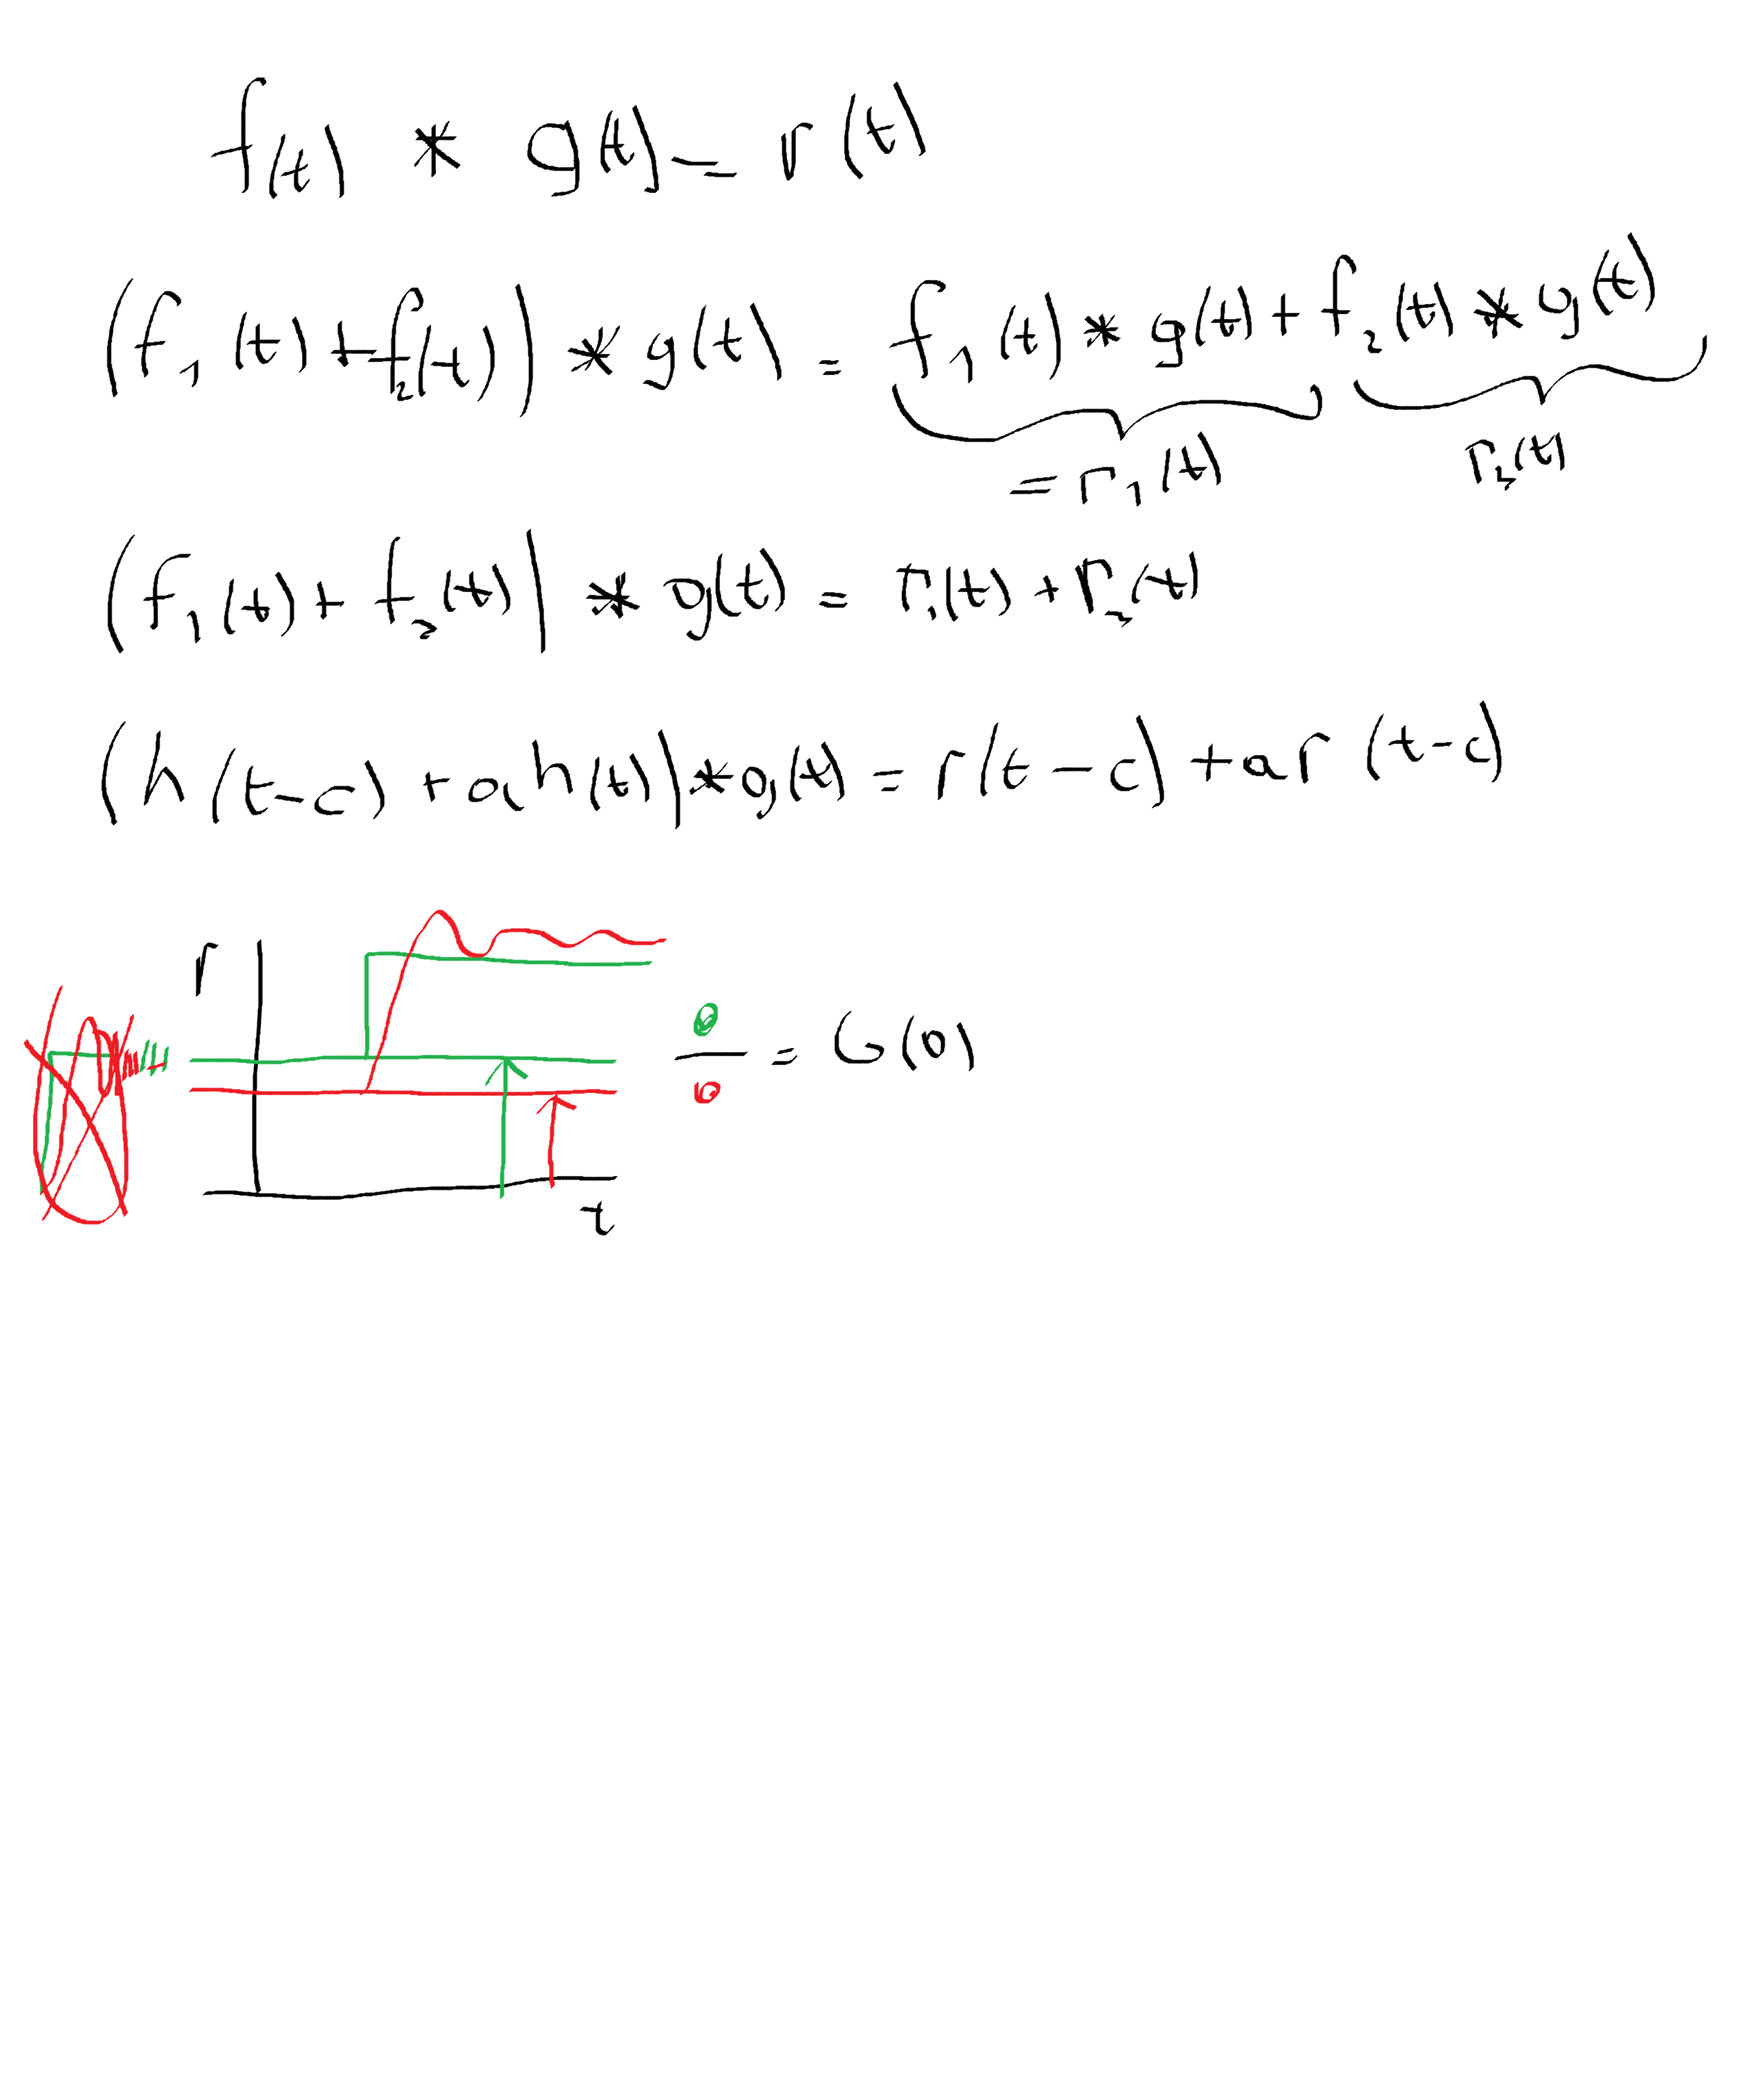 f(t) * g(t) = r(t)
(f₁(t) + f₂(t)) * g(t) = f₁(t) * g(t) + f₂(t) * g(t)
= r₁(t) r₂(t)
(f₁(t) + f₂(t)) * g(t) = r₁(t) + r₂(t)
(h(t-c) + a h(t)) * g(t) = r(t-c) + a r(t-c)
r
0
— = G(0)
0
t